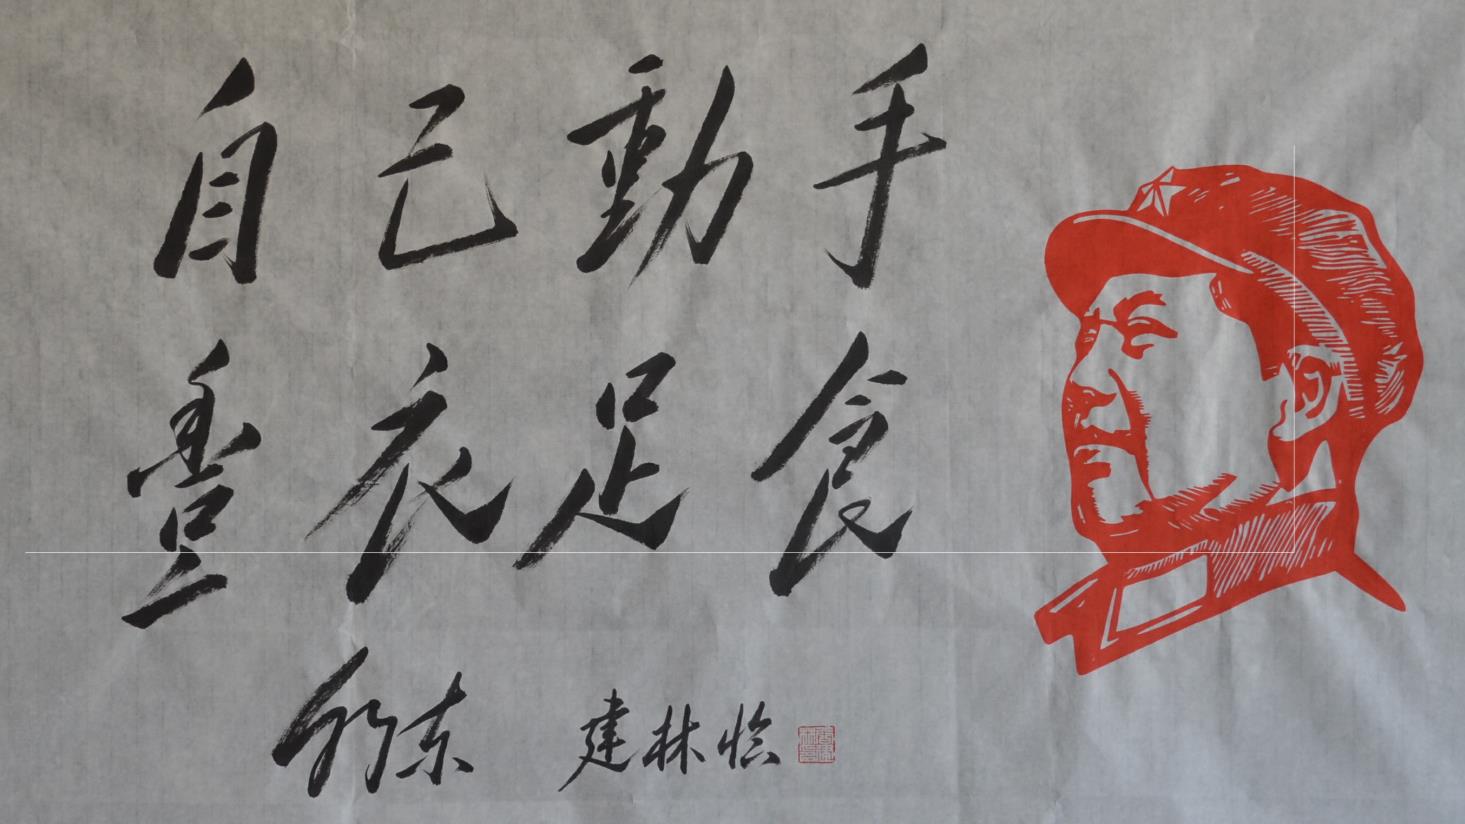 自己動手
豐衣足食
泽东 建林临